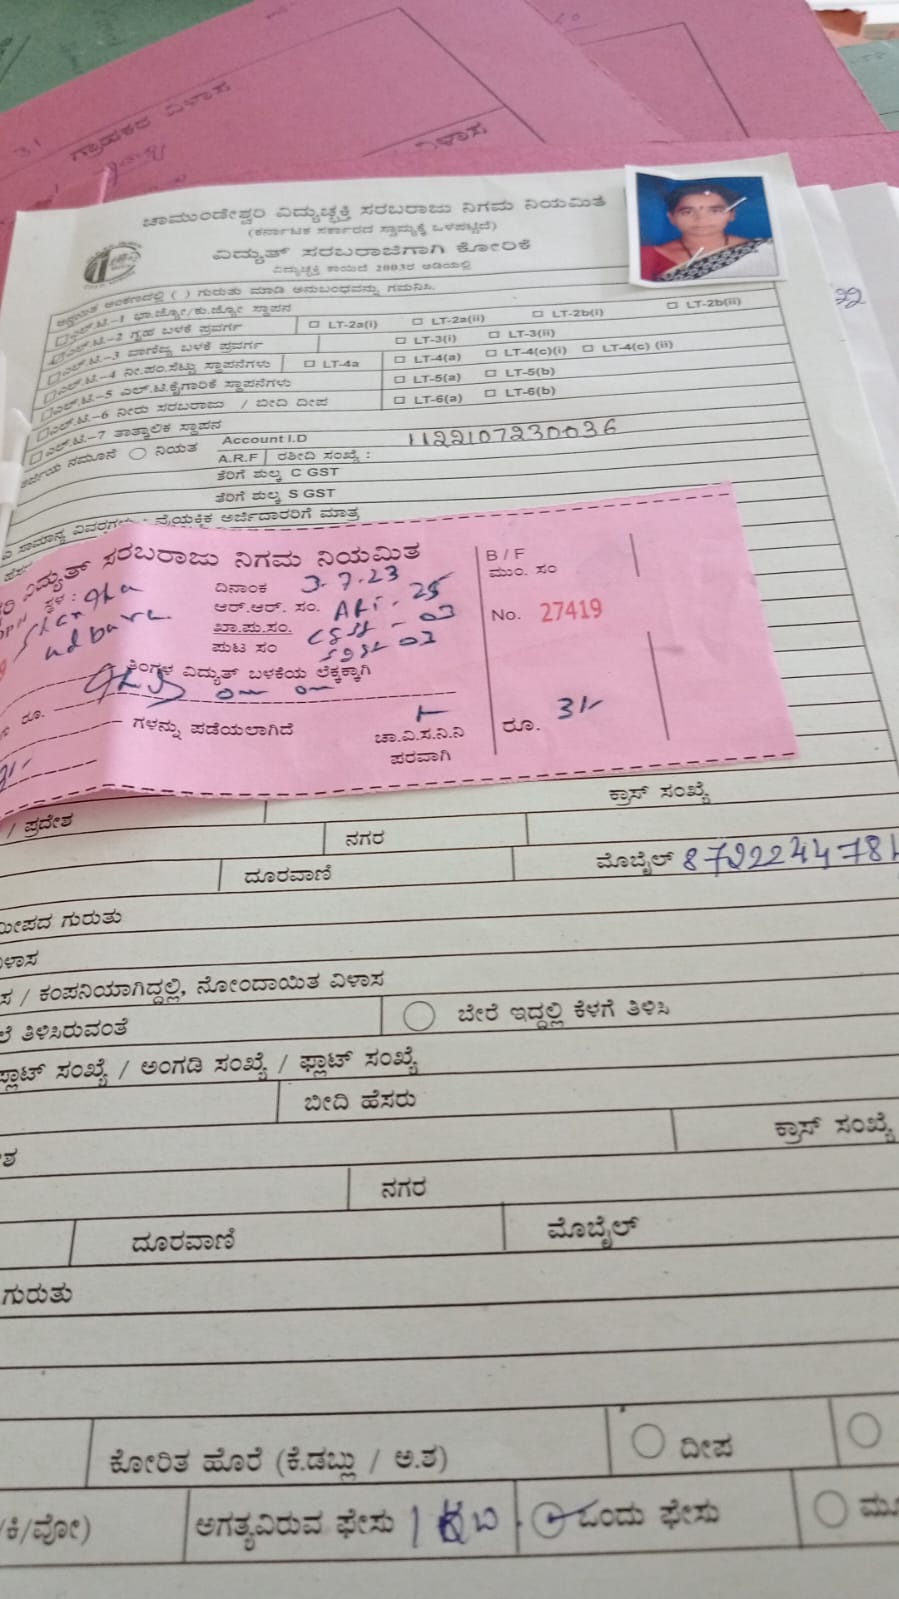 ಗ್ರಾಹಕರ ವಿಳಾಸ
ವಿಳಾಸ
ಚಾಮುಂಡೇಶ್ವರಿ ವಿದ್ಯುಚ್ಛಕ್ತಿ ಸರಬರಾಜು ನಿಗಮ ನಿಯಮಿತ
(ಕರ್ನಾಟಕ ಸರ್ಕಾರದ ಸ್ವಾಮ್ಯಕ್ಕೆ ಒಳಪಟ್ಟಿದೆ)
ವಿದ್ಯುತ್ ಸರಬರಾಜಿಗಾಗಿ ಕೋರಿಕೆ
ವಿದ್ಯುಚ್ಛಕ್ತಿ ಕಾಯಿದೆ 2003ರ ಅಡಿಯಲ್ಲಿ
ಅಂಕಣದಲ್ಲಿ ( ) ಗುರುತು ಮಾಡಿ ಅನುಬಂಧವನ್ನು ಗಮನಿಸಿ.
ಎಲ್.ಟಿ.-1 ಭಾ.ಜ್ಯೋ/ಕು.ಜ್ಯೋ ಸ್ಥಾಪನ
ಎಲ್.ಟಿ.-2 ಗೃಹ ಬಳಕೆ ಪ್ರವರ್ಗ LT-2a(i) LT-2a(ii) LT-2b(i) LT-2b(ii)
ಎಲ್.ಟಿ.-3 ವಾಣಿಜ್ಯ ಬಳಕೆ ಪ್ರವರ್ಗ LT-3(i) LT-3(ii)
ಎಲ್.ಟಿ.-4 ನೀ.ಪಂ.ಸೆಟ್ಟು ಸ್ಥಾಪನೆಗಳು LT-4a LT-4(a) LT-4(c)(i) LT-4(c) (ii)
ಎಲ್.ಟಿ.-5 ಎಲ್.ಟಿ.ಕೈಗಾರಿಕೆ ಸ್ಥಾಪನೆಗಳು LT-5(a) LT-5(b)
ಎಲ್.ಟಿ.-6 ನೀರು ಸರಬರಾಜು / ಬೀದಿ ದೀಪ LT-6(a) LT-6(b)
ಎಲ್.ಟಿ.-7 ತಾತ್ಕಾಲಿಕ ಸ್ಥಾಪನ
ಅರ್ಜಿಯ ನಮೂನೆ ನಿಯತ Account I.D 1122107230036
A.R.F ರಶೀದಿ ಸಂಖ್ಯೆ :
ತೆರಿಗೆ ಶುಲ್ಕ C GST
ತೆರಿಗೆ ಶುಲ್ಕ S GST
ಸಾಮಾನ್ಯ ವಿವರಗಳು : ವೈಯಕ್ತಿಕ ಅರ್ಜಿದಾರರಿಗೆ ಮಾತ್ರ
ವಿದ್ಯುತ್ ಸರಬರಾಜು ನಿಗಮ ನಿಯಮಿತ
B / F
ಮುಂ. ಸಂ
ಸ್ಥಳ :
ದಿನಾಂಕ 3.7.23
ಆರ್.ಆರ್. ಸಂ. 25
No. 27419
ಖಾ.ಪು.ಸಂ. CGST - 03
ಪುಟ ಸಂ SGST 03
ತಿಂಗಳ ವಿದ್ಯುತ್ ಬಳಕೆಯ ಲೆಕ್ಕಕ್ಕಾಗಿ
ರೂ.
ಗಳನ್ನು ಪಡೆಯಲಾಗಿದೆ
ರೂ. 31/-
ಚಾ.ವಿ.ಸ.ನಿ.ನಿ
ಪರವಾಗಿ
/ ಪ್ರದೇಶ ಕ್ರಾಸ್ ಸಂಖ್ಯೆ
ನಗರ
ದೂರವಾಣಿ ಮೊಬೈಲ್ 872224478
ಗುರುತು
ವಿಳಾಸ
/ ಕಂಪನಿಯಾಗಿದ್ದಲ್ಲಿ, ನೋಂದಾಯಿತ ವಿಳಾಸ
ತಿಳಿಸಿರುವಂತೆ ಬೇರೆ ಇದ್ದಲ್ಲಿ ಕೆಳಗೆ ತಿಳಿಸಿ
ಪ್ಲಾಟ್ ಸಂಖ್ಯೆ / ಅಂಗಡಿ ಸಂಖ್ಯೆ / ಫ್ಲಾಟ್ ಸಂಖ್ಯೆ
ಬೀದಿ ಹೆಸರು
ಕ್ರಾಸ್ ಸಂಖ್ಯೆ
ನಗರ
ದೂರವಾಣಿ ಮೊಬೈಲ್
ಗುರುತು
ಕೋರಿತ ಹೊರೆ (ಕೆ.ಡಬ್ಲು / ಅ.ಶ) ದೀಪ
ಕಿ/ವೋ) ಅಗತ್ಯವಿರುವ ಫೇಸು ಒಂದು ಫೇಸು